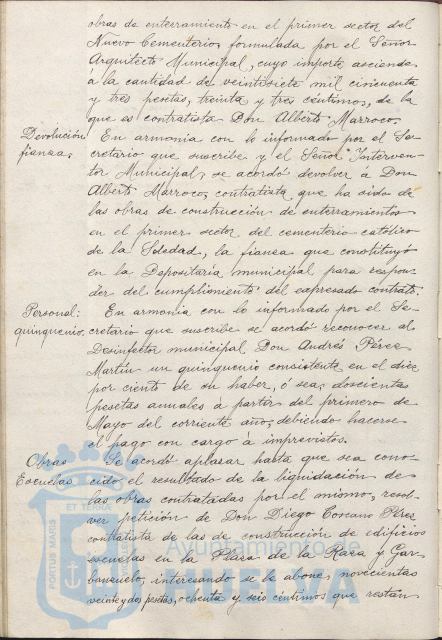 obras de enterramiento en el primer sector del
Nuevo Cementerio, formulada por el Señor
Arquitecto Municipal, cuyo importe asciende
á la cantidad de veintisiete mil cincuenta
y tres pesetas, treinta y tres céntimos, de la
que es contratista Don Alberto Marroco.
Devolución
fianza,
En armonía con lo informado por el Se-
cretario que suscribe y el Señor Interven-
tor Municipal, se acordó devolver á Don
Alberto Marroco, contratista que ha sido de
las obras de construcción de enterramientos
en el primer sector del cementerio católico
de la Soledad, la fianza que constituyó
en la Depositaría municipal para respon-
der del cumplimiento del expresado contrato.
Personal:
quinquenio.
En armonía con lo informado por el Se-
cretario que suscribe se acordó reconocer al
Desinfector municipal Don Andrés Pérez
Martín un quinquenio consistente en el diez
por ciento de su haber, ó sea, doscientas
pesetas anuales á partir del primero de
Mayo del corriente año, debiendo hacerse
el pago con cargo á imprevistos.
Obras
Escuelas
Se acordó aplazar hasta que sea cono-
cido el resultado de la liquidación de
las obras contratadas por el mismo, resol-
ver petición de Don Diego Toscano Pérez
contratista de las de construcción de edificios
escuelas en la Plaza de la Raza y Gar-
banzuelo, interesando se le abonen novecientas
veinte y dos pesetas, ochenta y seis céntimos que restan
PORTUS MARIS
ET TERRAE
Ayuntamiento
HUELVA